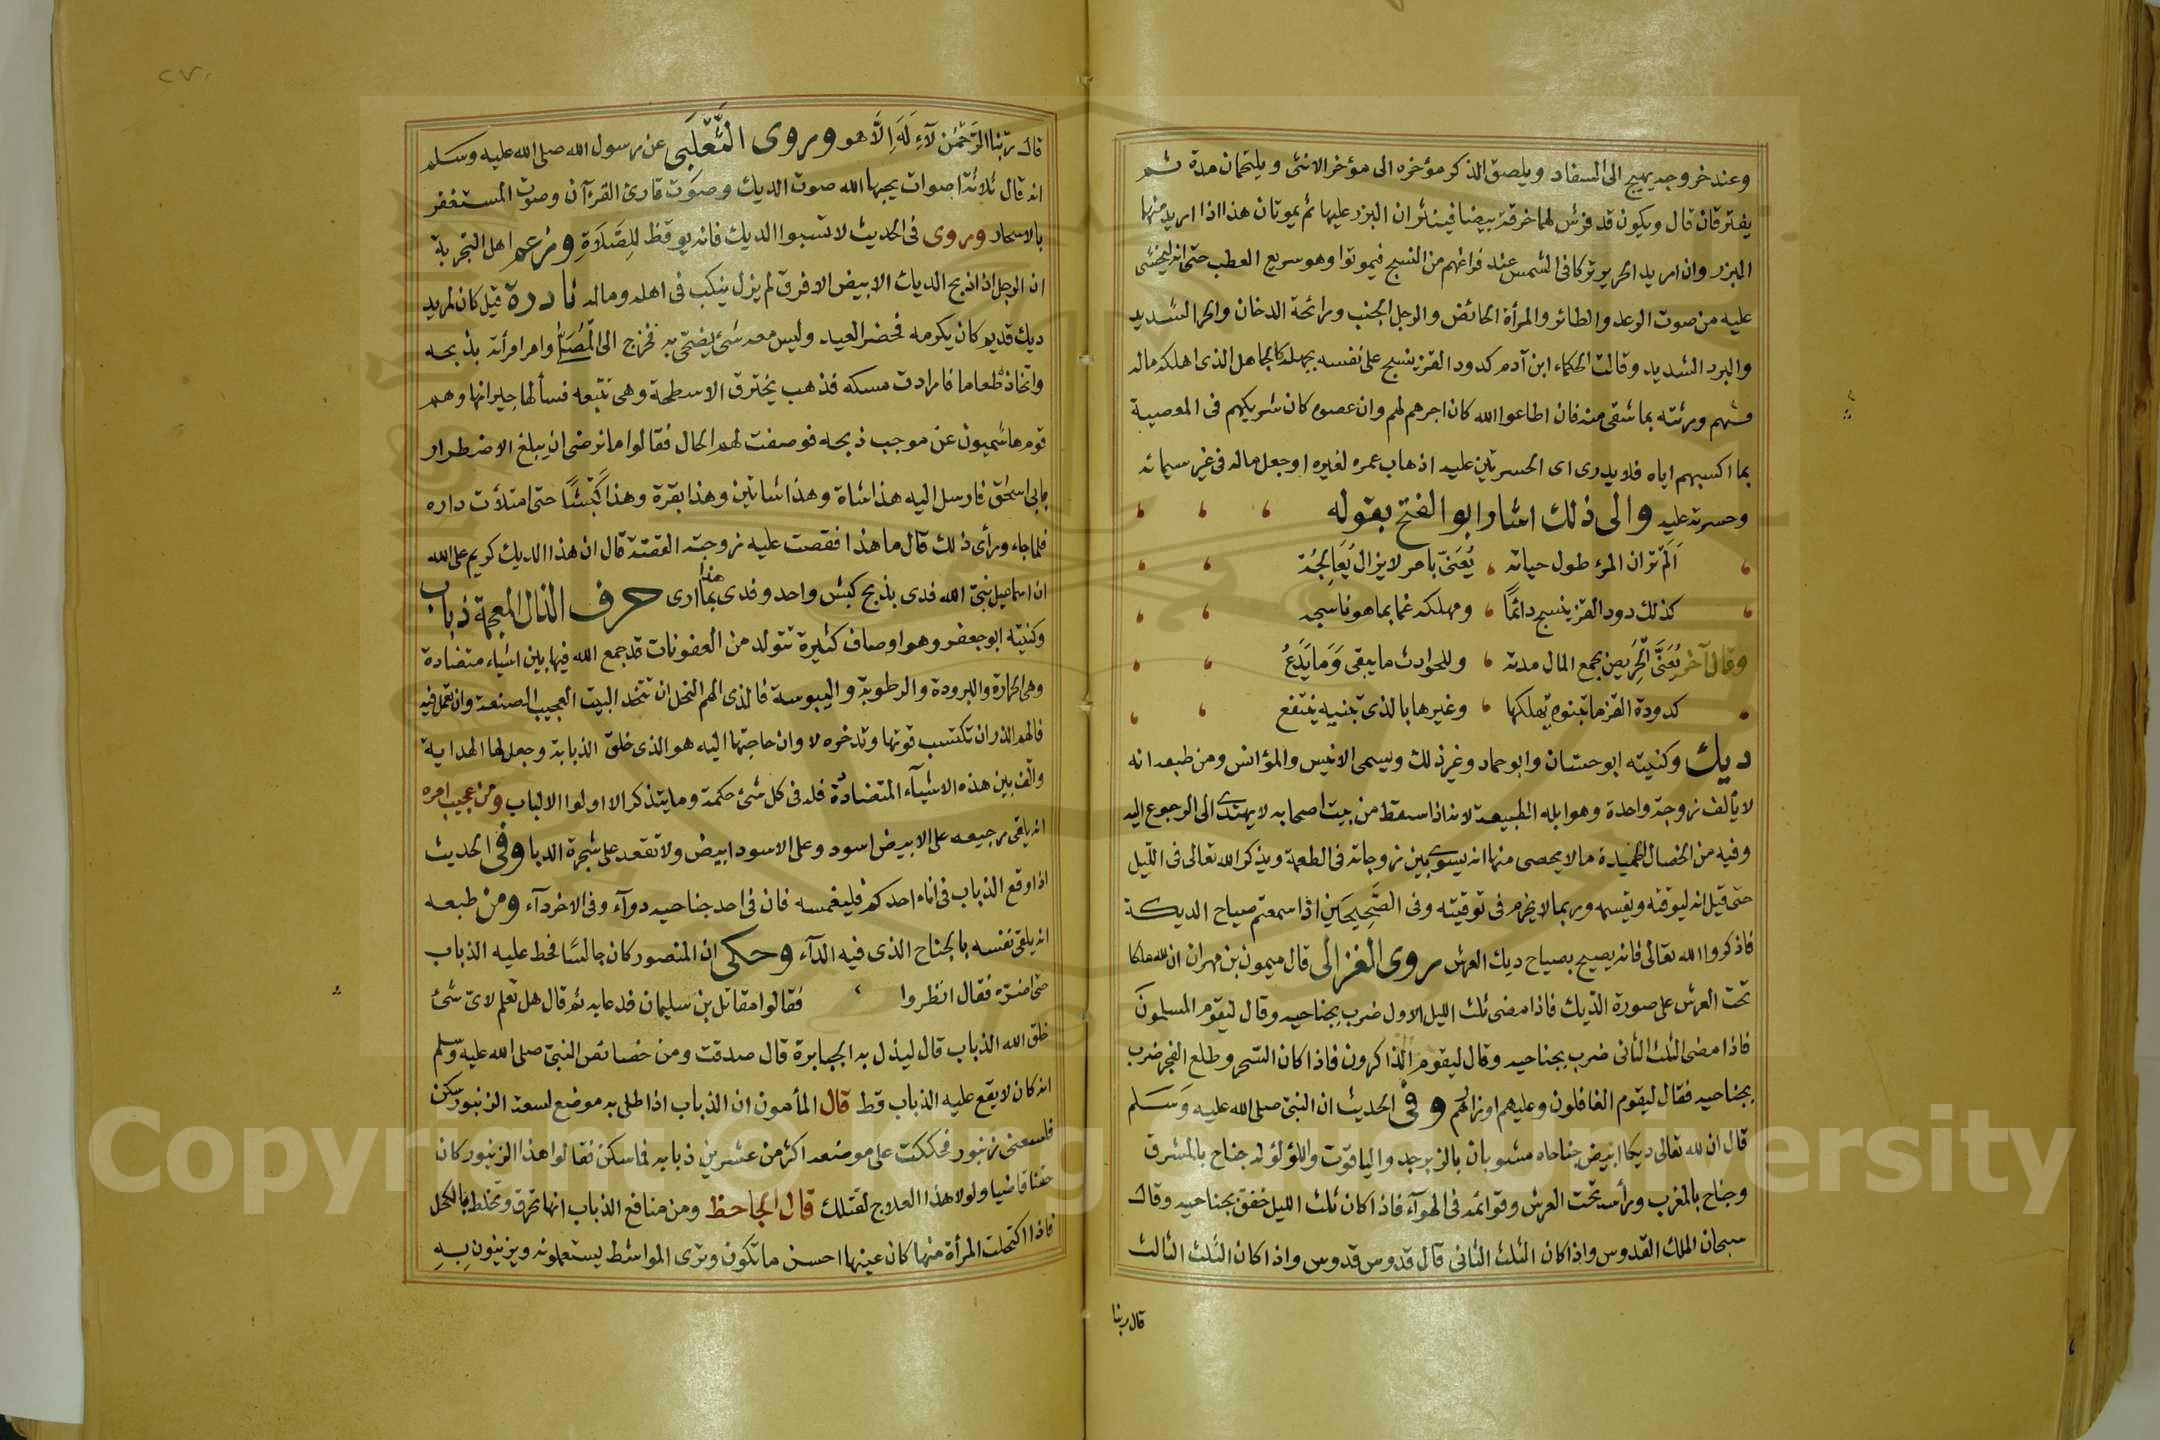 وعند خروجه يهيج الى السفاد ويلصق الذكر مؤخره الى مؤخر الانثى ويلتحمان مدة ثم
يفترقان قال ويكون قد فرش لهما خرقة بيضا فينثران البزر عليها ثم يموتان هذا اذا اريد منها
البزر وان اريد الحرير تركا فى الشمس عند فراغهم من النسج فيموتوا وهو سريع العطب حتى انه ليخشى
عليه من صوت الرعد والطائر والمرأة الحائض والرجل الجنب ورائحة الدخان والحر الشديد
والبرد الشديد وقالت الحكماء ابن آدم كدود القز ينسج على نفسه بجهله كالجاهل الذى اهلكه ماله
ورثته بما شقى منه فان اطاعوا الله كان اجرهم لهم وان عصوه كان شريكهم فى المعصية
بما اكسبهم اياه فلا يدرى اى الحسرتين عليه اذهاب عمره لغيره او جعل ماله فى غير سيمائه
وحسرته عليه والى ذلك اشار ابو الفتح بقوله
اَلَمْ تر ان المرؤ طول حياته يُعَنّى بامر لا يزال يُعَالِجُة
كذلك دود القز ينسج دائماً ومهلكه غما بما هو ناسجه
وقال آخر يُعَنَّى الحَرِيص بجمع المال مدته وللحوادث ما يبقى وَمَا يَدَعُ
كدودة القز ما تبنوه يهلكها وغيرها بالذى تبنيه ينتفع
ديك وكنيته ابو حسان وابو حماد وغير ذلك ويسمى الانيس والمؤانس ومن طبعه انه
لا يألف زوجة واحدة وهو ابله الطبيعة لانه اذا سقط من بيت اصحابه لا يهتدى الى الرجوع اليه
وفيه من الخصال الحميدة ما لا يحصى منها انه يسوى بين زوجاته فى الطعمة ويذكر الله تعالى فى الليل
حتى قيل انه ليوقته ويقسمه وربما لا يخرم فى توقيته وفى الصَّحِيحَين اذا سمعتم صياح الديكة
فاذكروا الله تعالى فانه يصيح بصياح ديك العرش روى الغزالى قال ميمون بن مهران ان لله ملكا
تحت العرش على صورة الديك فاذا مضى ثلث الليل الاول ضرب بجناحيه وقال ليقوم المسلمونَ
فاذا مضى الثلث الثانى ضرب بجناحيه وقال ليقوم الذاكرون فاذا كان السّحر وطلع الفجر ضرب
بجناحيه فقال ليقوم الغافلون وعليهم اوزارهم وفى الحديث ان النبىّ صلى الله عليه وَسَلم
قال ان لله تعالى ديكا ابيض جناحاه مشوبان بالزبرجد والياقوت واللؤلؤ له جناح بالمشرق
وجناح بالمغرب ورأسه تحت العرش وقوائمه فى الهوآء فاذا كان ثلث الليل خفق بجناحيه وقال
سبحان الملك القدوس واذا كان الثلث الثانى قال قدوس قدوس واذا كان الثلث الثالث
قال ربنا
٢٧٠
قال ربّنا الرَّحْمٰن لآءِلَهَ اِلَّا هو وروى الثَّعْلَبَى عن رسول الله صلى الله عليه وسلم
انه قال ثلاثة اصوات يحبها الله صوت الديك وصوت قارئ القرءآن وصوت المستغفر
بالاسحار وروى فى الحديث لا تسبوا الديك فانه يوقظ للصَلاة وزعم اهل التجربة
ان الرجل اذا ذبح الديك الابيض الافرق لم يزل ينكب فى اهله وماله نادرة قيل كان لمزيد
ديك قديم كان يكرمه فحضر العيد وليس معه شئ يضحّى به فخرج الى المُصَلّا وامر امرأته بذبحه
واتخاذ طعاما فارادت مسكه فذهب يخترق الاسطحة وهى تتبعه فسألها جيرانها وهم
قوم هاشميون عن موجب ذبحه فوصفت لهم الحال فقالوا ما نرضى ان يبلغ الاضطرار
بابى اسحٰق فارسل اليه هذا شاة وهذا شاتين وهذا بقرة وهذا كَبْشًا حتى امتلأت داره
فلما جاء ورأى ذلك قال ما هذا فقصت عليه زوجته القصة قال ان هذا الديك كريم على الله
ان اسماعيل نبىّ الله فدى بذبح كبش واحد وفدى هذا بما ارى حرف الذال المعجمة ذباب
وكنيته ابو جعفر وهو اوصاف كثيرة تتولد من العفونات قد جمع الله فيها بين اشياء متضادة
وهى الحرارة والبرودة والرطوبة واليبوسة فالذى الهم النحل ان تتخذ البيت العجيب الصنعة وان تعمل فيه
فالهم الذر ان تكتسب قوتها وتدخره لاوان حاجتها اليه هو الذى خلق الذبابة وجعل لها الهداية
والّف بين هذه الاشيآء المتضادة فله فى كل شئ حكمة وما يتذكر الا اولوا الالباب ومن عجيب امره
انه يلقى رجيعه على الابيض اسود وعلى الاسود ابيض ولا تقعد على شجرة الدبا وفى الحديث
اذا وقع الذباب فى اناء احدكم فليغمسه فان فى احد جناحيه دوآء وفى الاخر دآء ومن طبعه
انه يلقى نفسه بالجناح الذى فيه الدآء وحكى ان المنصور كان جالسًا فحط عليه الذباب
حتى اضجره فقال انظروا فقالوا مقاتل بن سليمان فدعا به ثم قال هل تعلم لاىّ شئ
خلق الله الذباب قال ليذل به الجبابرة قال صدقت ومن خصائص النبىّ صلى الله عليه وسلم
انه كان لا يقع عليه الذباب قط قال المأمون ان الذباب اذا طلى به موضع لسعة الزنبور سكن
فلسعنى زنبور فحككت على موضعه اكثر من عشرين ذبابه فما سكن فقالوا هذا الزنبور كان
حتفا قاضيا ولولا هذا العلاج لقتلك قال الجاحظ ومن منافع الذباب انها تحرق وتخلط بالكحل
فاذا اكتحلت المرأة منها كان عينها احسن ما تكون وترى المواشط يستعملونه ويزينون بِهِ
Copyright © King Saud University